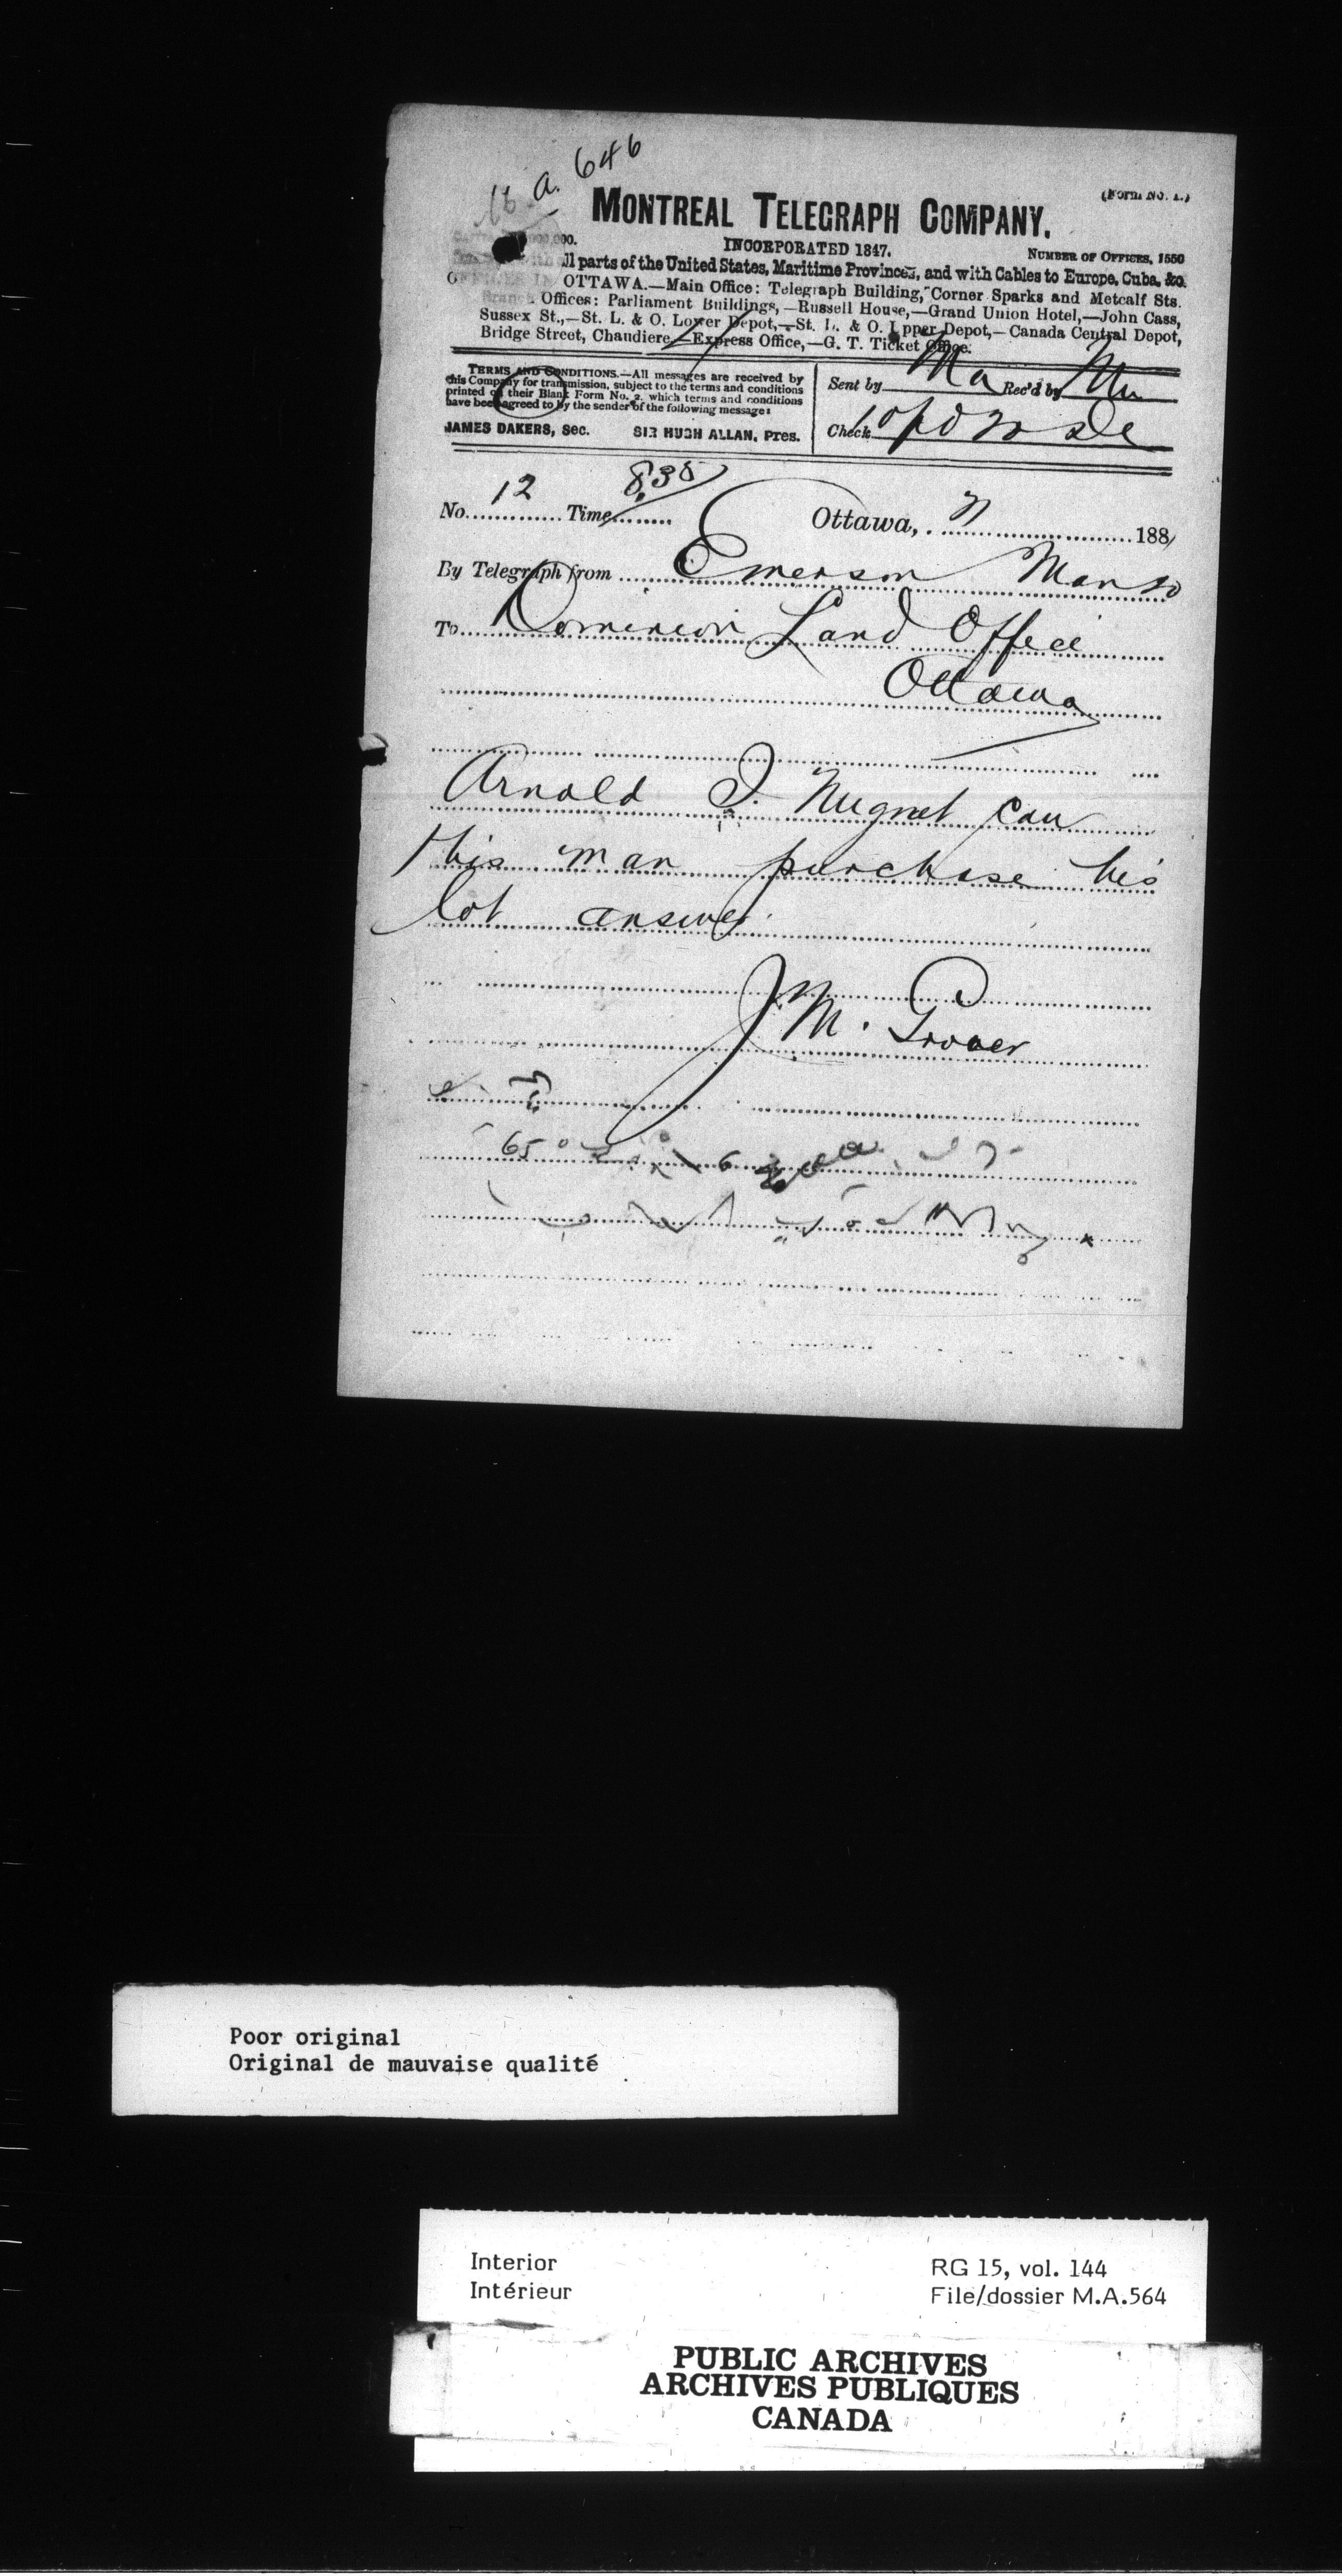 a. 646
(Form No. 1.)
MONTREAL TELEGRAPH COMPANY.
INCORPORATED 1847.
NUMBER OF OFFICES, 1550
all parts of the United States, Maritime Provinces, and with Cables to Europe, Cuba, &c.
OTTAWA.—Main Office: Telegraph Building, Corner Sparks and Metcalf Sts.
Branch Offices: Parliament Buildings,—Russell House,—Grand Union Hotel,—John Cass,
Sussex St.,—St. L. & O. Lower Depot,—St. L. & O. Upper Depot,—Canada Central Depot,
Bridge Street, Chaudiere,—Express Office,—G. T. Ticket Office.
TERMS AND CONDITIONS.—All messages are received by
this Company for transmission, subject to the terms and conditions
printed on their Blank Form No. 2, which terms and conditions
have been agreed to by the sender of the following message:
JAMES DAKERS, Sec. SIR HUGH ALLAN, Pres.
Sent by Ma Rec'd by
Check 10
No. 12 Time 8.35
Ottawa, 188
By Telegraph from Emerson Man
To Dominion Land Office
Ottawa
Arnold J. Nugnet can
this man purchase his
lot answer
J M. Grover
65
Poor original
Original de mauvaise qualité
Interior
Intérieur
RG 15, vol. 144
File/dossier M.A.564
PUBLIC ARCHIVES
ARCHIVES PUBLIQUES
CANADA